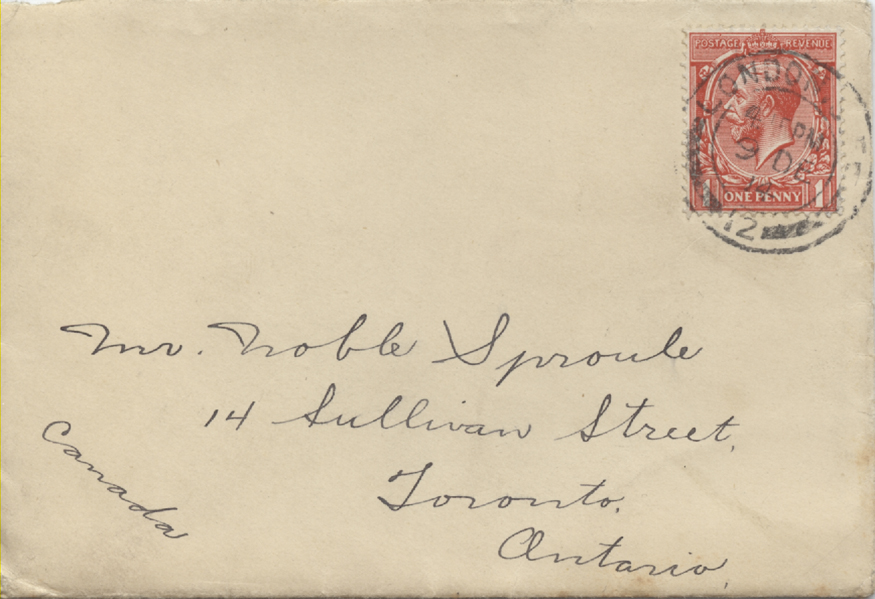 POSTAGE REVENUE
LONDON
4 PM
9 DE
14
12
1 ONE PENNY 1
Mr. Noble Sproule
14 Sullivan Street,
Toronto.
Ontario,
Canada